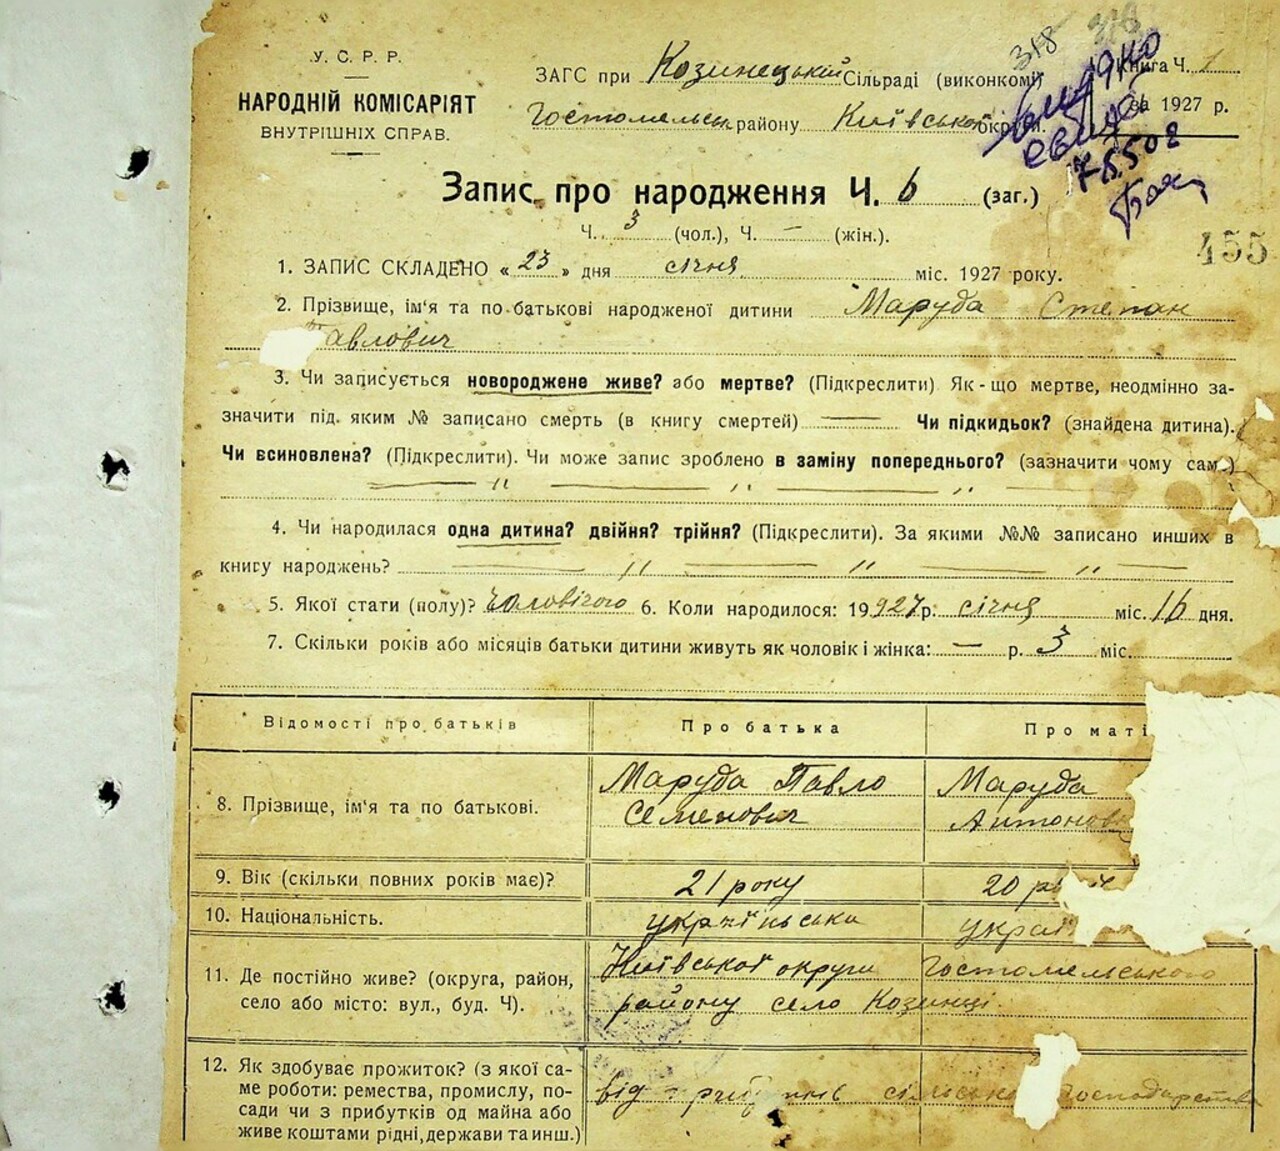 У.С.Р.Р.
НАРОДНІЙ КОМІСАРІЯТ
ВНУТРІШНІХ СПРАВ.
318 318
ЗАГС при Козинецькій Сільраді (виконкомі)
Книга Ч. 1
за 1927 р.
Гостомельськ району Київської округи.
75508
Запис про народження Ч. 6 (заг.)
Ч. 3 (чол.), Ч. — (жін.).
455
1. ЗАПИС СКЛАДЕНО « 23 » дня січня міс. 1927 року.
2. Прізвище, ім'я та по батькові народженої дитини Маруба Степан
авлович
3. Чи записується новороджене живе? або мертве? (Підкреслити) Як-що мертве, неодмінно за-
значити під яким № записано смерть (в книгу смертей) — Чи підкидьок? (знайдена дитина).
Чи всиновлена? (Підкреслити). Чи може запис зроблено в заміну попереднього? (зазначити чому сам.)
— " — " — " —
4. Чи народилася одна дитина? двійня? трійня? (Підкреслити). За якими №№ записано инших в
книгу народжень? — " — " — " —
5. Якої стати (полу)? чоловічого 6. Коли народилося: 19927р. січня міс. 16 дня.
7. Скільки років або місяців батьки дитини живуть як чоловік і жінка: — р. 3 міс.
Відомості про батьків Про батька Про маті
8. Прізвище, ім'я та по батькові. Маруба Павло Маруба
Семенович Антонов
9. Вік (скільки повних років має)? 21 року 20 р
10. Національність. українська украї
11. Де постійно живе? (округа, район, Київської округи Гостомельського
село або місто: вул., буд. Ч). району село Козинці.
12. Як здобуває прожиток? (з якої са-
ме роботи: ремества, промислу, по- від сільсько господарства
сади чи з прибутків од майна або
живе коштами рідні, держави та инш.)